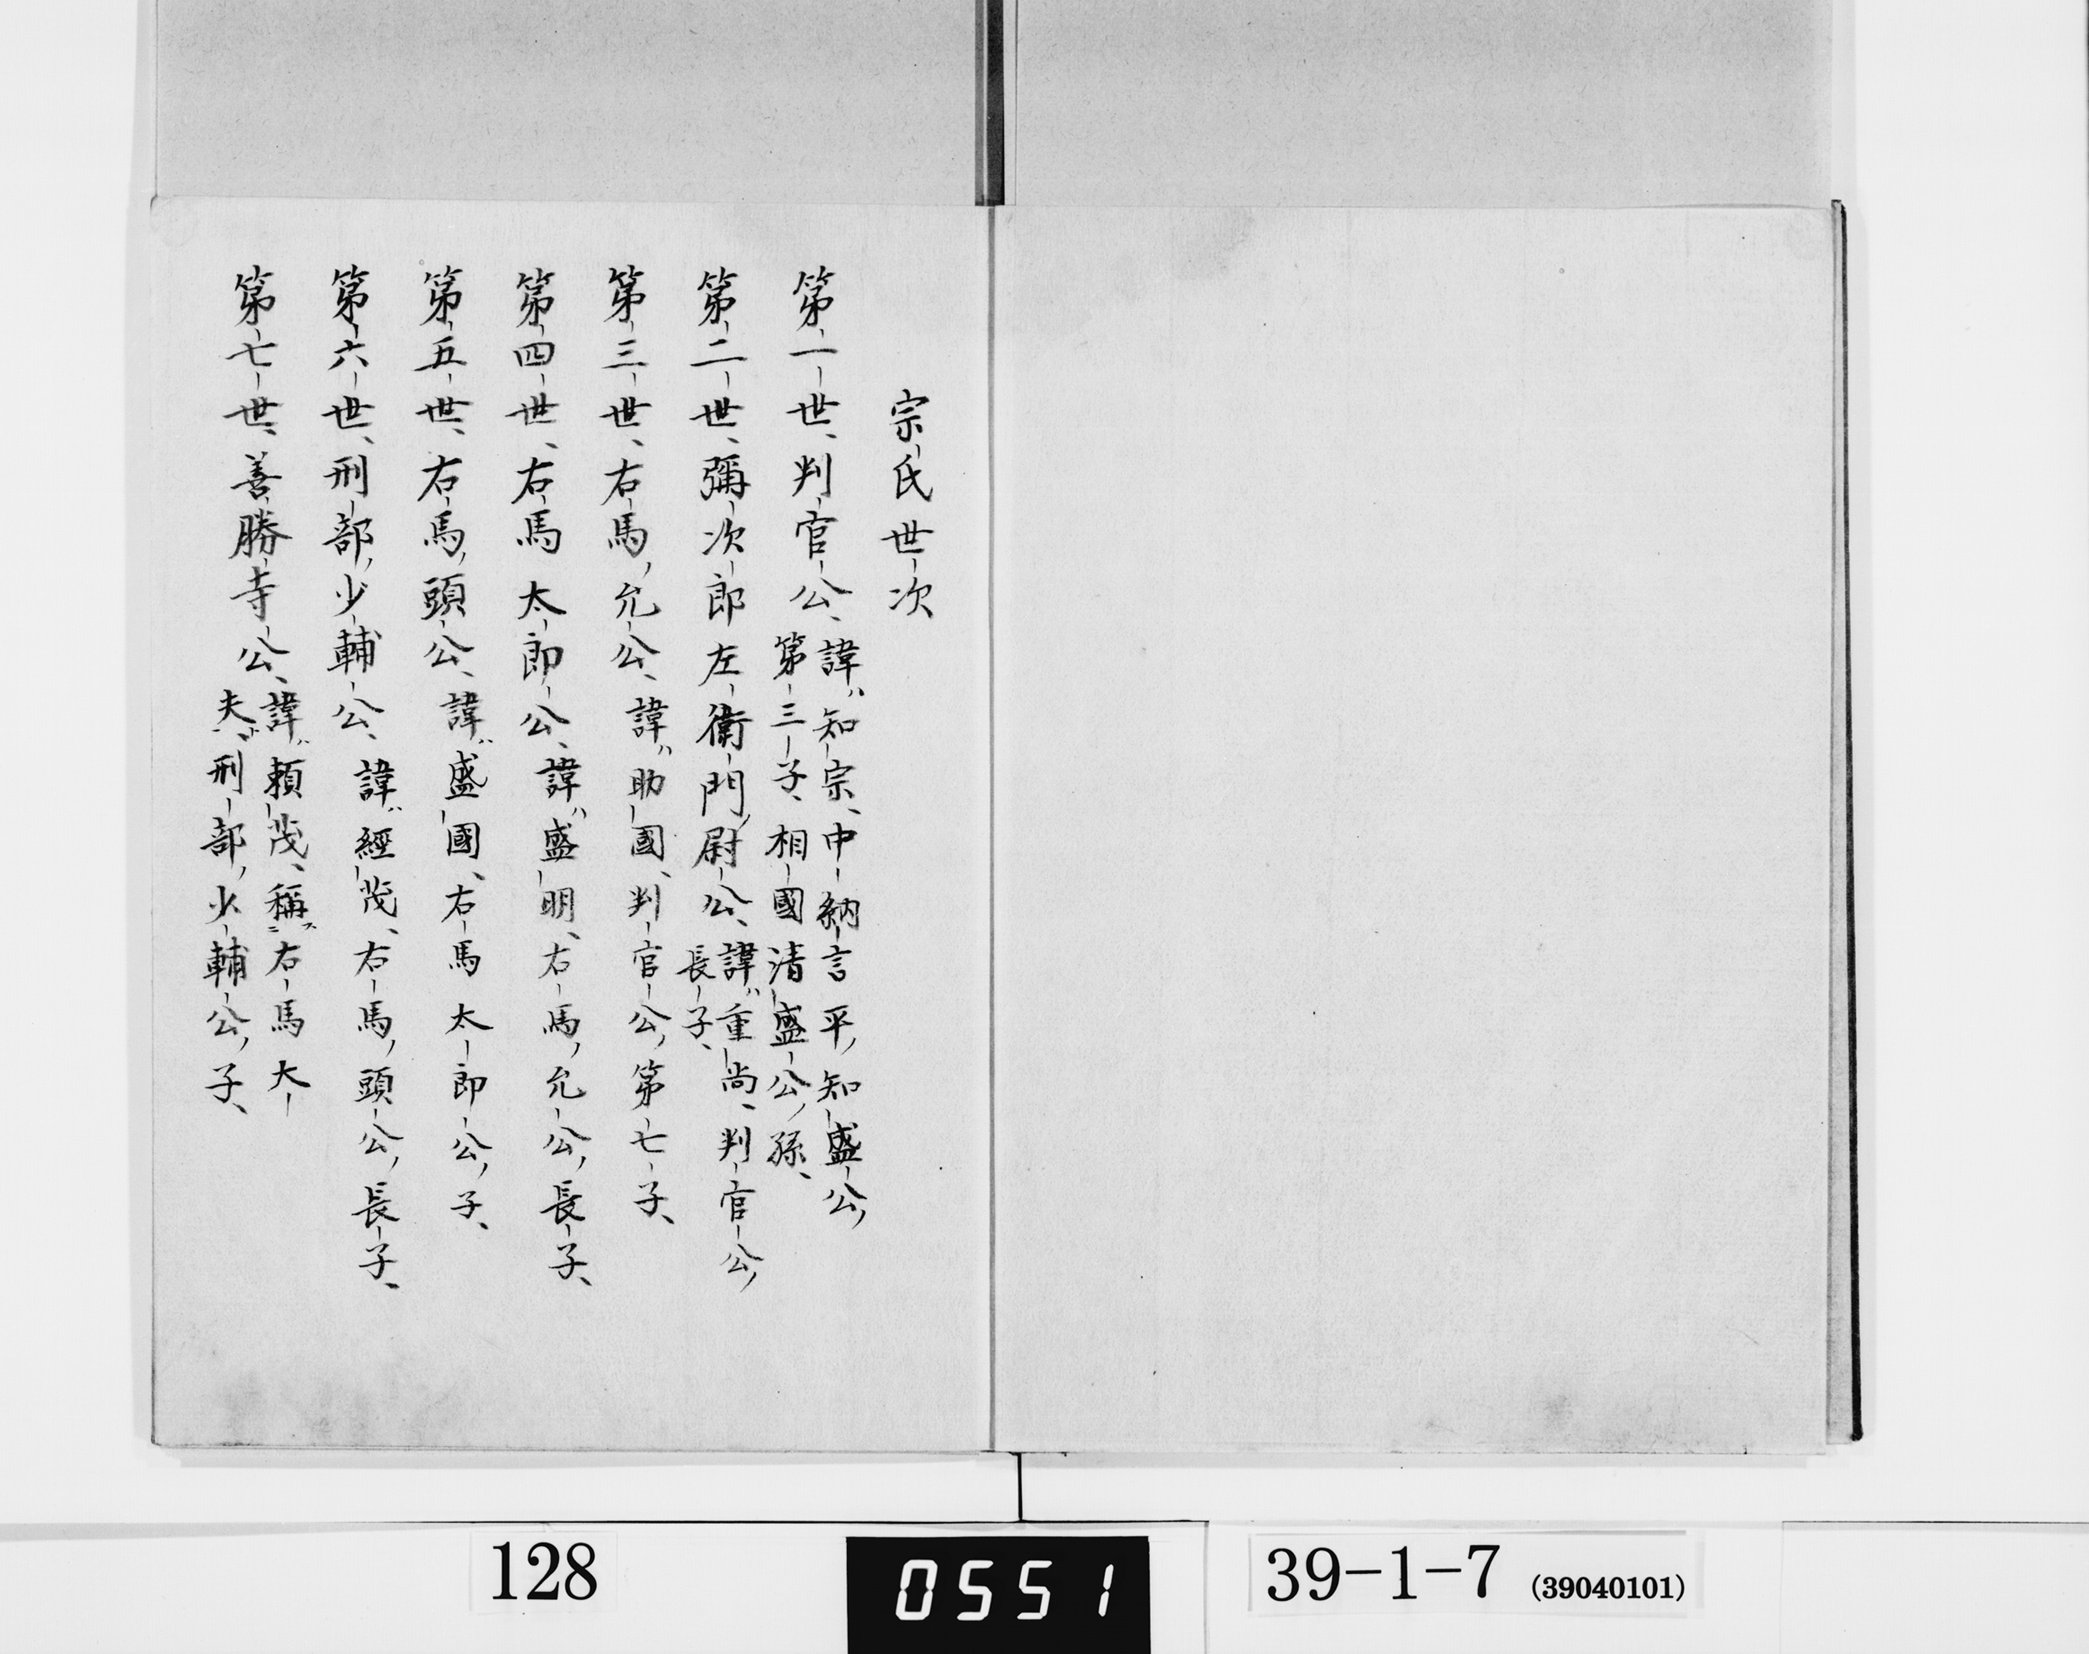 宗氏世次
第一世、判官公、諱ハ知宗、中納言平ノ知盛公ノ
第三子、相國清盛公ノ孫、
第二世、彌次郎左衛門ノ尉公、諱ハ重尚、判官公ノ
長子、
第三世、右馬ノ允公、諱ハ助國、判官公ノ第七子、
第四世、右馬太郎公、諱ハ盛明、右馬ノ允公ノ長子、
第五世、右馬ノ頭公、諱ハ盛國、右馬太郎公ノ子、
第六世、刑部ノ少輔公、諱ハ經茂、右馬ノ頭公ノ長子、
第七世、善勝寺公、諱ハ頼茂、稱ス右馬大
夫ト、刑部ノ少輔公ノ子、
128
0551
39-1-7 (39040101)